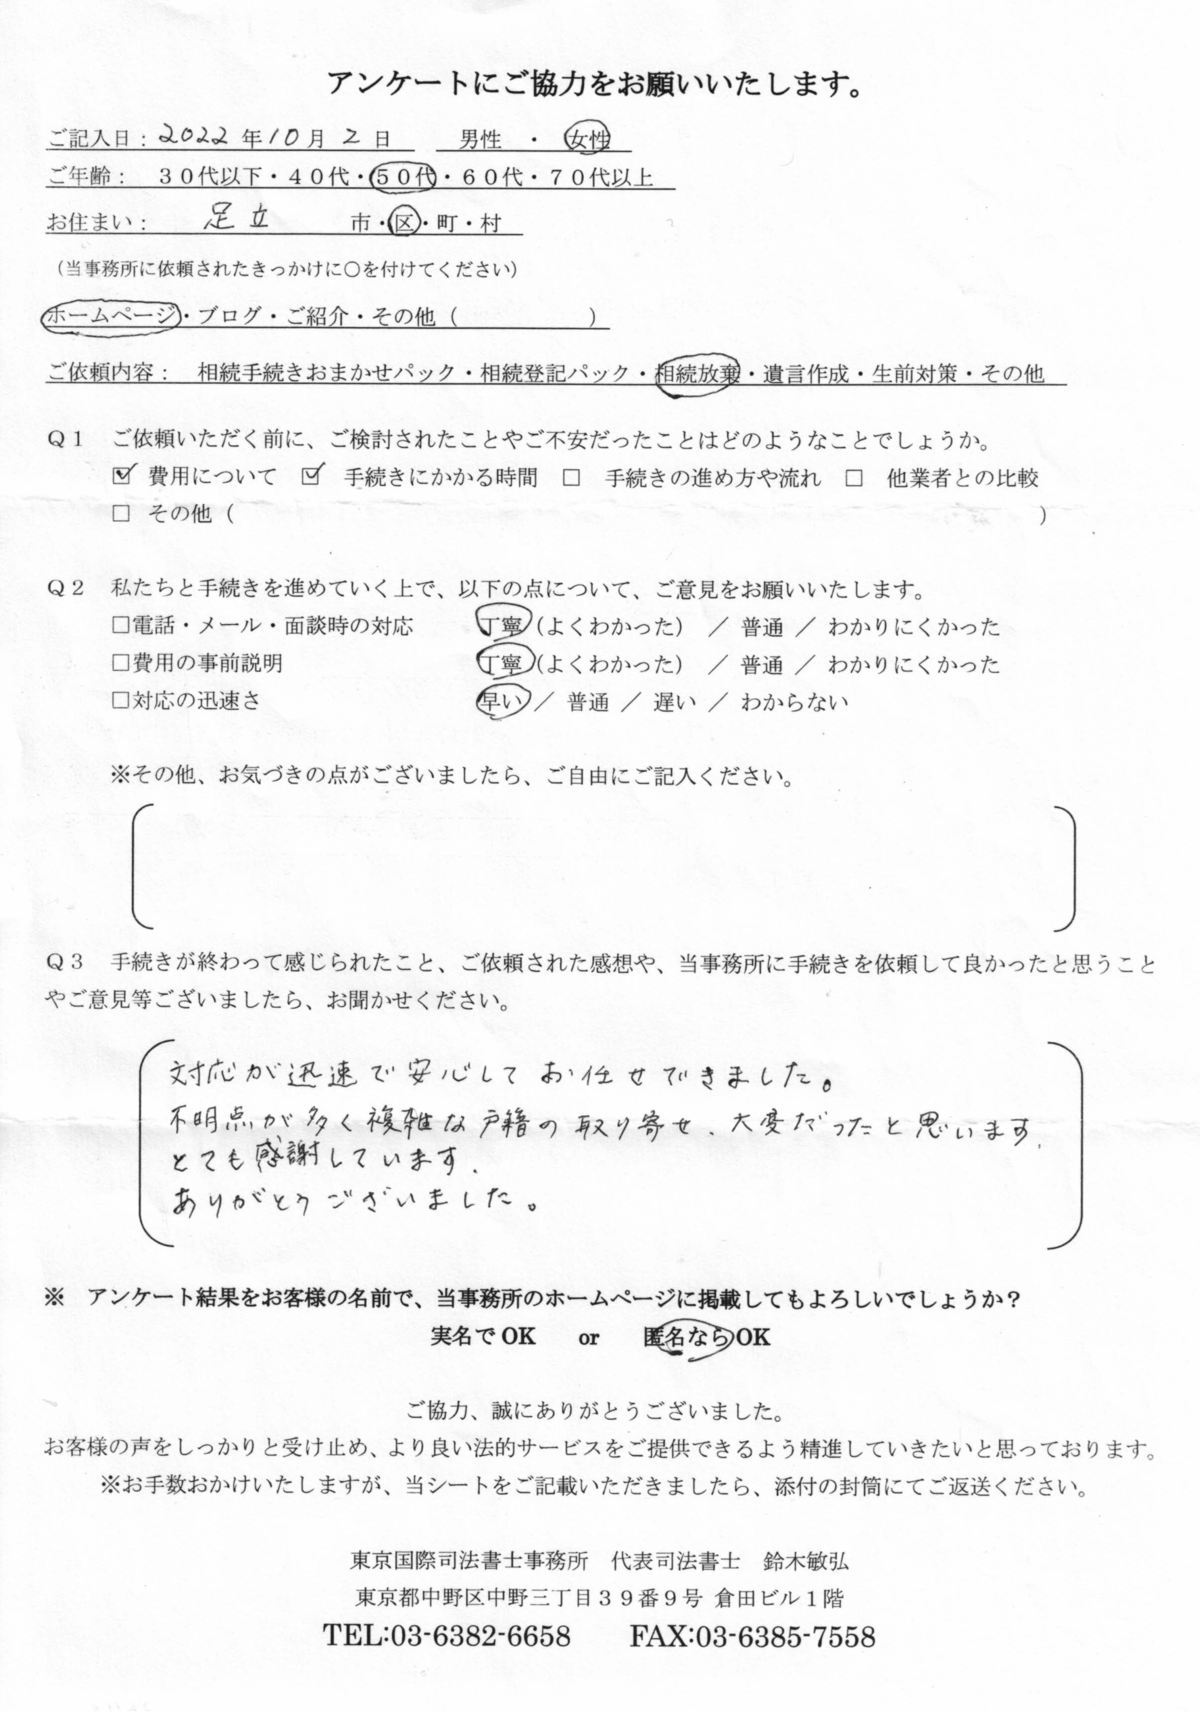 アンケートにご協力をお願いいたします。
ご記入日：2022年10月2日　男性　・　女性
ご年齢：　３０代以下・４０代・５０代・６０代・７０代以上
お住まい：　足立　市・区・町・村
（当事務所に依頼されたきっかけに○を付けてください）
ホームページ・ブログ・ご紹介・その他（　　　　　　）
ご依頼内容：　相続手続きおまかせパック・相続登記パック・相続放棄・遺言作成・生前対策・その他
Ｑ１　ご依頼いただく前に、ご検討されたことやご不安だったことはどのようなことでしょうか。
☑ 費用について　☑ 手続きにかかる時間　□ 手続きの進め方や流れ　□ 他業者との比較
□ その他（　　　　　　　　　　　　　　　　　　）
Ｑ２　私たちと手続きを進めていく上で、以下の点について、ご意見をお願いいたします。
□電話・メール・面談時の対応　丁寧（よくわかった）　／ 普通 ／ わかりにくかった
□費用の事前説明　丁寧（よくわかった）　／ 普通 ／ わかりにくかった
□対応の迅速さ　早い ／ 普通 ／ 遅い ／ わからない
※その他、お気づきの点がございましたら、ご自由にご記入ください。
Ｑ３　手続きが終わって感じられたこと、ご依頼された感想や、当事務所に手続きを依頼して良かったと思うこと
やご意見等ございましたら、お聞かせください。
対応が迅速で安心してお任せできました。
不明点が多く複雑な戸籍の取り寄せ、大変だったと思います、
とても感謝しています、
ありがとうございました。
※　アンケート結果をお客様の名前で、当事務所のホームページに掲載してもよろしいでしょうか？
実名で OK　or　匿名なら OK
ご協力、誠にありがとうございました。
お客様の声をしっかりと受け止め、より良い法的サービスをご提供できるよう精進していきたいと思っております。
※お手数おかけいたしますが、当シートをご記載いただきましたら、添付の封筒にてご返送ください。
東京国際司法書士事務所　代表司法書士　鈴木敏弘
東京都中野区中野三丁目３９番９号 倉田ビル１階
TEL:03-6382-6658　FAX:03-6385-7558